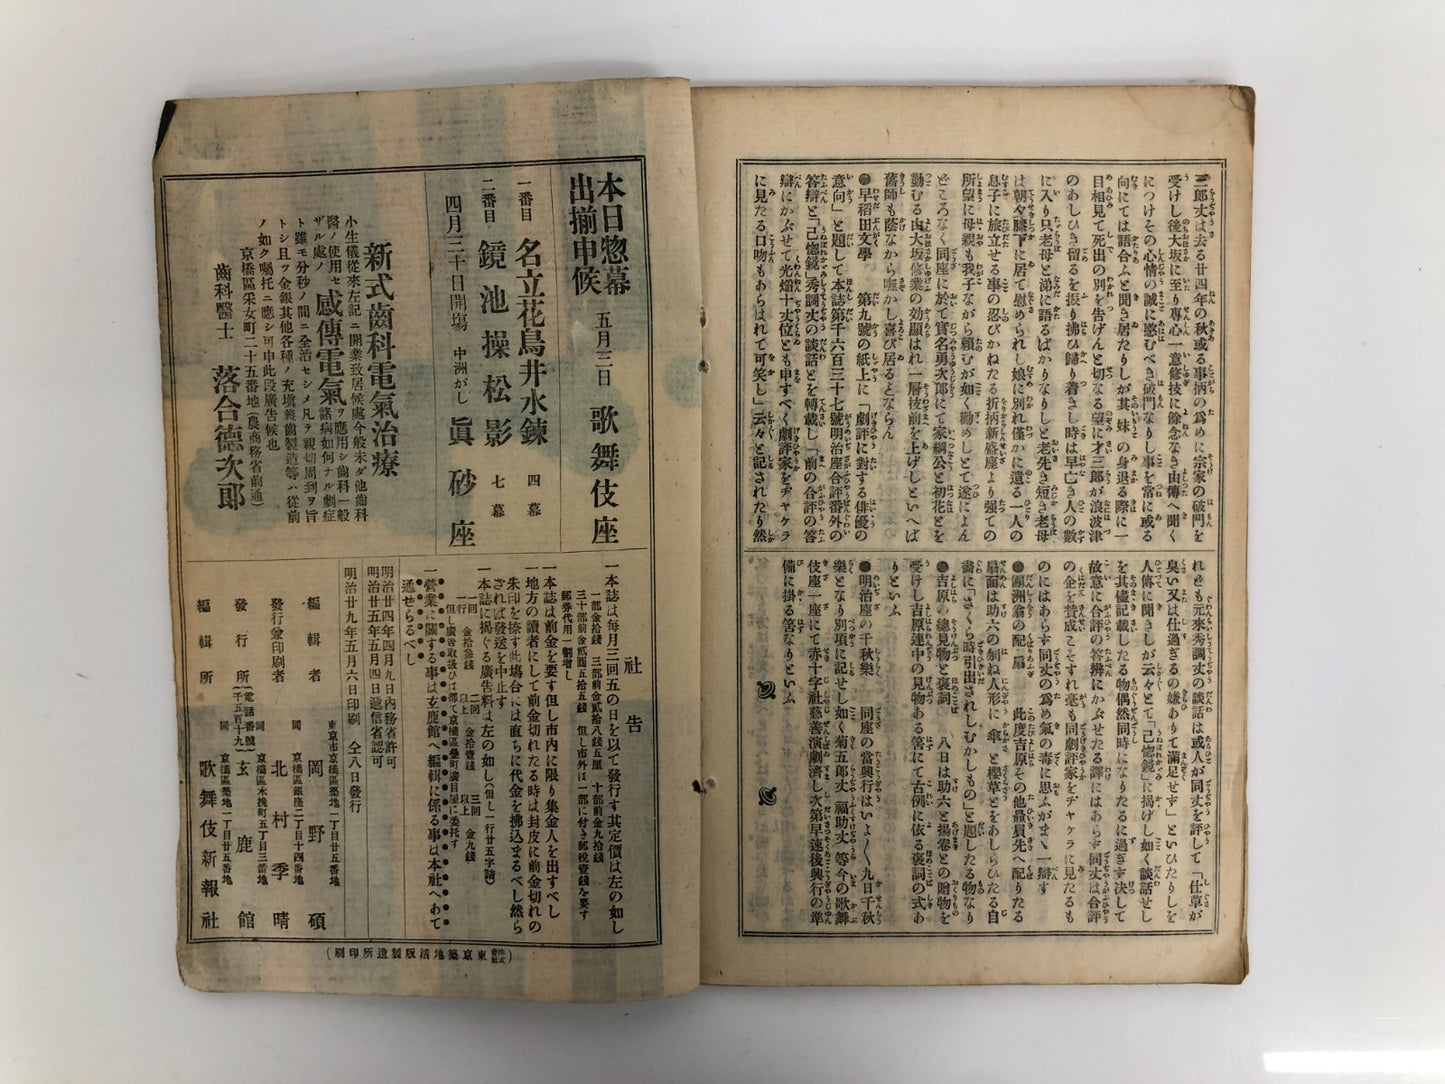 三郎丈は去る廿四年の秋或る事柄の爲めに宗家の破門を
受けし後大坂に至り専心一意修技に餘念なき由傳へ聞く
につけその心情の誠に愍むべき破門なりし事を常に或る
向にては語合ふと聞き居たりしが其、妹の身退る際に一
目相見て死出の別を告げんと切なる望に才三郎が浪波津
のあしひき留るを振り拂ひ歸り着きし時は早亡き人の數
に入り只老母と弟に語るばかりなりしと老先き短き老母
は朝夕膝下に居て慰められし娘に別れ僅かに遺る一人の
息子に旅立せる事の忍びかねたる折柄新盛座より強ての
所望に母親も我子ながら頼むが如く勸めしとて遂によん
どころなく同座に於て實名勇次郎にて家綱公と初花とを
勤むる由大坂修業の効顯はれ一層技前を上げしといへば
舊師も蔭なから嘸かし喜び居るとならん
●早稻田文學　第九號の紙上に「劇評に對する俳優の
意向」と題して本誌第千六百三十七號明治座合評番外の
答辯と「己惚鏡」秀調丈の談話とを轉載し「前の合評の答
辯にかぶせて光燔十丈位とも申すべく劇評家をヂャケラ
に見たる口吻もあらはれて可笑し」云々と記されたり然
れども元來秀調丈の談話は或人が同丈を評して「仕草が
臭い又は仕過ぎるの嫌ありて滿足せず」といひたりしを
人傳に聞きしが云々とて「己惚鏡」に揭げし如く談話せし
を其儘記載したる物偶然同時になりたるに過ぎず決して
故意に合評の答辨にかぶせたる譯にはあらず同丈は合評
の企を賛成こそすれ毫も同劇評家をヂャケラに見たるも
のにはあらす同丈の爲め氣の毒に思ふがまゝ一辯す
●團洲翁の配り扇　此度吉原その他最屓先へ配りたる
扇面は助六の刎ね人形に傘と櫻草とをあしらひたる自
畵に「さくら時引出されしむかしもの」と題したる物なり
●吉原の總見物と褒詞　八日は助六と揚卷との贈物を
受けし吉原連中の見物ある筈にて古例に依る褒詞の式あ
りといふ
●明治座の千秋樂　同座の當興行はいよ〱九日千秋
樂となり別項に記せし如く菊五郎丈、福助丈、等今の歌舞
伎座一座にて赤十字社慈善演劇濟し次第早速後興行の準
備に掛る筈なりといふ
本日惣幕
出揃申候
五月三日　歌舞伎座
一番目　名立花鳥井水鍊　四幕
二番目　鏡池操松影　七幕
四月三十日開塲　中洲がし　眞砂座
新式齒科電氣治療
小生儀從來左記ニ開業致居候處今般未ダ他齒科
醫ノ使用セ
ザル處ノ　感傳電氣　ヲ應用シ齒科一般
諸病如何ナル劇症
ト雖モ分秒ノ間ニ全治セシメ凡テ親切周到ヲ旨
トシ且ヲ金銀其他各種ノ充塡義齒製造等ハ從前
ノ如ク囑托ニ應シ可申此段廣告候也
京橋區采女町二十五番地(農商務省前通)
齒科醫士　落合德次郎
社告
一本誌は毎月三回五の日を以て發行す其定價は左の如し
一部金拾錢　三部前金貳拾八錢五厘　十部前金九拾錢
三十部前金貳圓五拾五錢　但し市外は一部に付き郵稅壹錢を要す
郵券代用一割增し
一本誌は前金を要す但し市內に限り集金人を出すべし
一地方の讀者にして前金切れたる時は封皮に前金切れの
朱印を捺す此塲合には直ちに代金を拂込まるべし然ら
ざれば發送を中止す
一本誌に揭ぐる廣告料は左の如し(但し一行廿五字詰)
一回
一行　金拾參錢　二回
以上　金拾壹錢　三回
以上　金九錢
但し廣吿取扱ひは都て京橋區疊町廣目屋に委托す
一營業に關する事は玄鹿館へ編輯に係る事は本社へあて
通せらるべし
明治廿四年四月九日內務省許可
明治廿五年五月四日遞信省認可
明治廿九年五月六日印刷　仝八日發行
編輯者　東京市京橋區築地一丁目廿五番地　岡野碩
發行兼印刷者　同京橋區銀座二丁目十四番地　北村季晴
發行所　同京橋區木挽町五丁目三番地　玄鹿館
(電話番號千五百十九)
編輯所　同京橋區築地一丁目廿五番地　歌舞伎新報社
(株式會社東京築地活版製造所印刷)